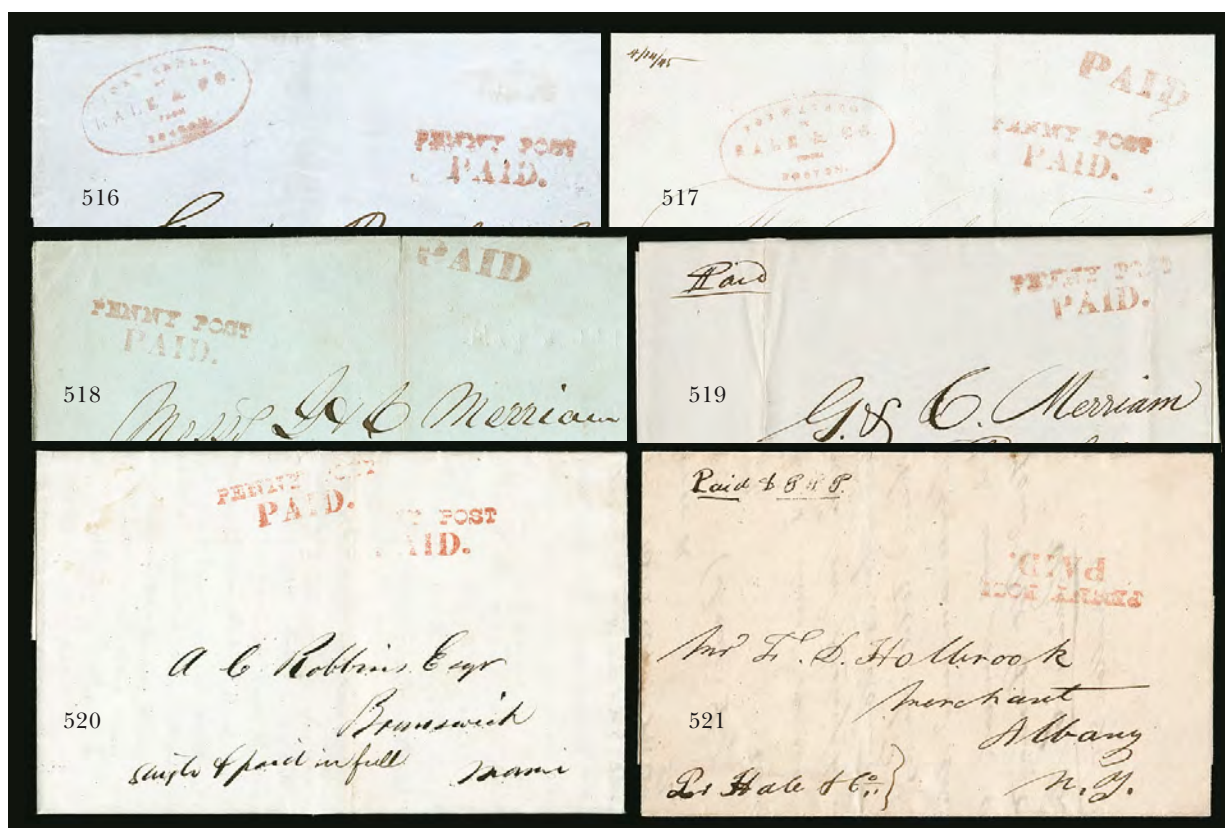 HALE & CO.
FROM
BOSTON.
PENNY POST
PAID.
516
4/14/45
PAID
FORWARDED
BY
HALE & CO.
FROM
BOSTON.
PENNY POST
PAID.
517
PAID
PENNY POST
PAID.
518
Messrs G & C Merriam
Paid
PENNY POST
PAID.
519
G. & C. Merriam
PENNY POST
PAID.
POST
PAID.
A C Robbins Esqr
520
Brunswick
single & paid in full
Paid & P.P.P.
PENNY POST
PAID.
Holbrook
521
Merchant
Albany
Pr Hale & Co.
N.Y.